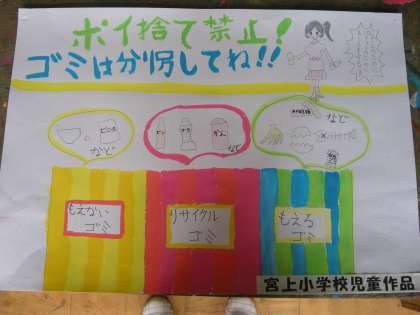 ポイ捨て禁止!
ゴミは分別してね!!
など
など
など
ビン
かん
もえない
ゴミ
リサイクル
ゴミ
もえる
ゴミ
宮上小学校児童作品